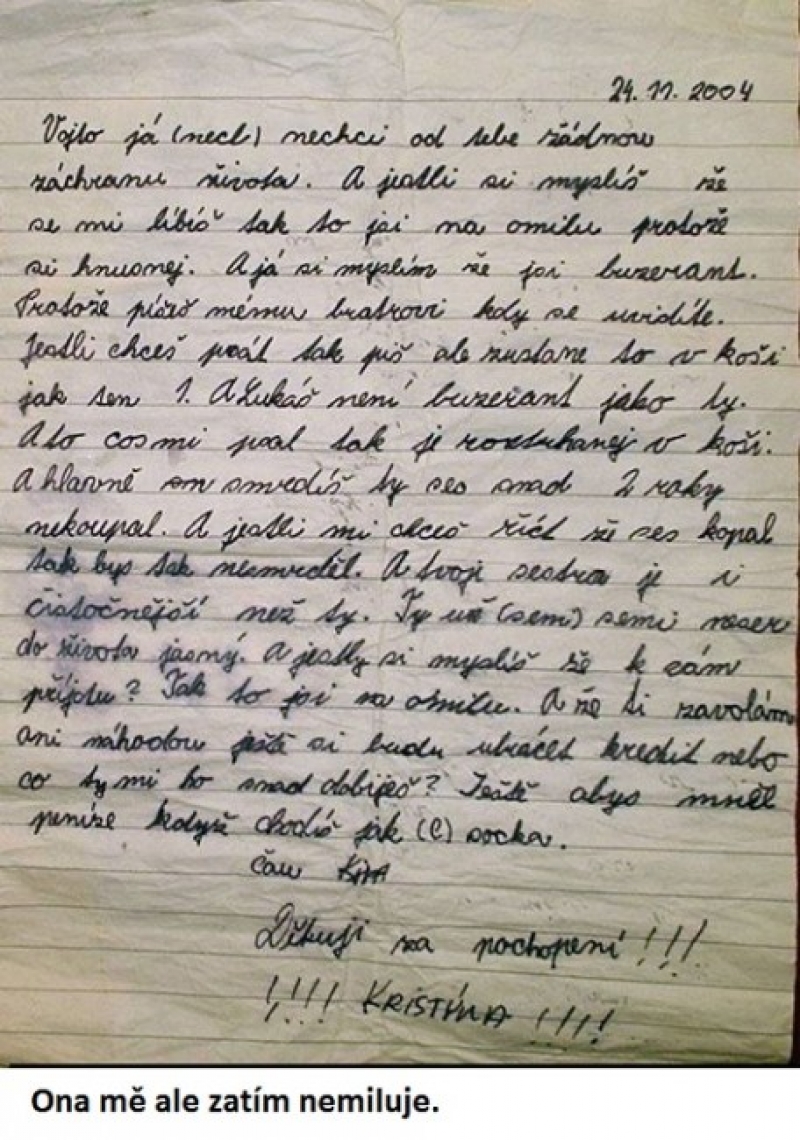 24.11.2004
Vojto já (necl) nechci od tebe žádnou
záchranu života. A jestli si myslíš že
se mi líbíš tak to jsi na omilu protože
si hnusnej. A já si myslím že jsi buzerant.
Protože píšeš mému bratrovi kdy se uvidíte.
Jestli chceš psát tak piš ale zustane to v koši
jak ten 1. A Lukáš není buzerant jako ty.
A to cos mi psal tak je roztrhanej v koši.
A hlavně sm smrdíš ty ses snad 2 roky
nekoupal. A jestli mi chceš říct že ses kopal
tak bys tak nesmrděl. A tvoji sestra je i
čistočnější než ty. Ty už (sem) semi neser
do života jasný. A jestly si myslíš že k vám
příjdu? Tak to jsi na omilu. A že ti zavolám
ani náhodou ještě si budu utrácet kredit nebo
co ty mi ho snad dobiješ? Jestě abys mněl
peníze když chodíš jak (C) socka.
Čau
Děkuji za pochopení!!!
!!!! KRISTÝNA !!!!
Ona mě ale zatím nemiluje.